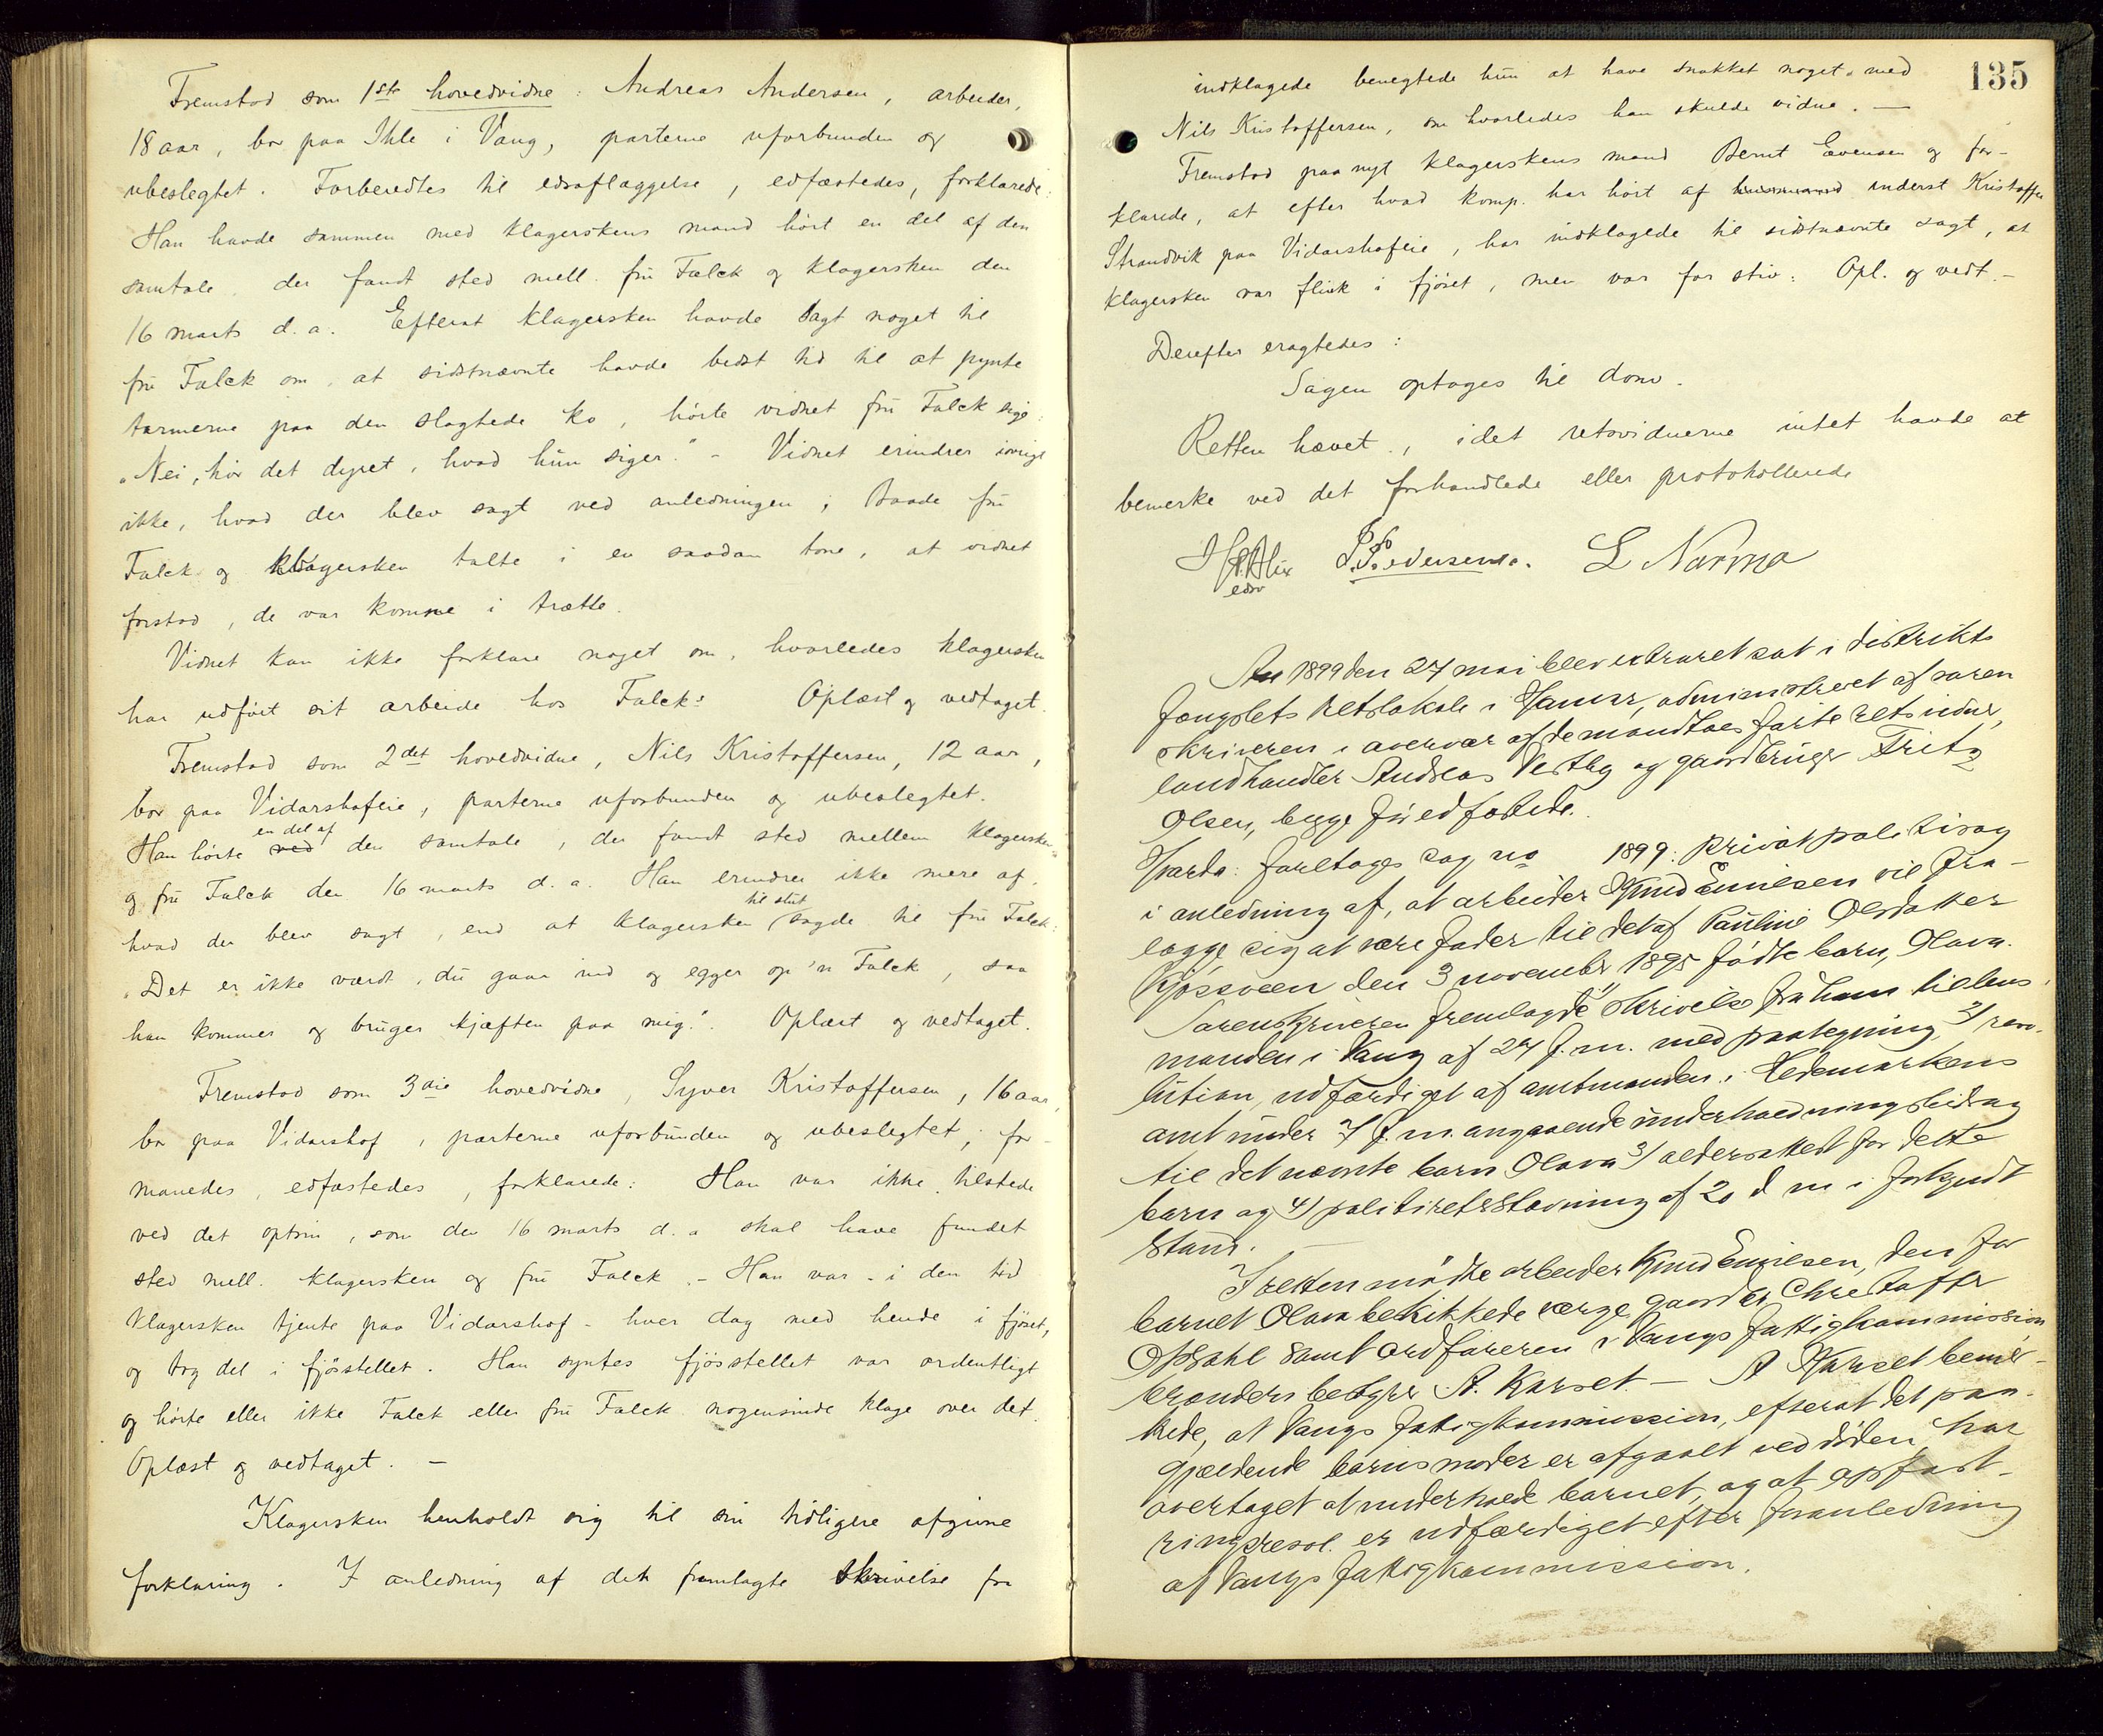 Fremstod som 1ste hovedvidne: Andreas Andersen, arbeider,
18 aar, bor paa Ihle i Vang, parterne uforbunden og
ubeslegtet. Forberedtes til edsaflæggelse, edfæstedes, forklarede:
Han havde sammen med klagerskens mand hört en del af den
samtale der fandt sted mell. frü Falck og klagersken den
16 marts d.a. Efterat klagersken havde sagt noget til
frü Falck om, at sidstnævnte havde bedst tid til at pynte
tarmerne paa den slagtede ko, hörte vidnet frü Falck sige:
"Nei, hör det dyret, hvad hün siger." - Vidnet erindrer iövrigt
ikke, hvad der blev sagt ved anledningen; baade frü
Falck og klagersken talte i en saadan tone, at vidnet
forstod, de var komne i trætte.
Vidnet kan ikke forklare noget om, hvorledes klagersken
har udfört sit arbeide hos Falck: Oplæst og vedtaget.
Fremstod som 2det hovedvidne, Nils Kristoffersen, 12 aar,
bor paa Vidarshofeie, parterne uforbunden og ubeslegtet.
Han hörte ved en del af den samtale, der fandt sted mellem klagersken
og frü Falck den 16 marts d.a. Han erindrer ikke mere af,
hvad der blev sagt, end at klagersken til slut sagde til frü Falck:
"Det er ikke værdt, dü gaar ind og egger op 'n Falck, saa
han kommer og brüger kjæften paa mig." Oplæst og vedtaget.
Fremstod som 3die hovedvidne, Syver Kristoffersen, 16 aar,
bor paa Vidarshof, parterne uforbünden og ubeslegtet; for-
manedes, edfæstedes, forklarede: Han var ikke tilstede
ved det optrin, som den 16 marts d.a skal have fundet
sted mell. klagersken og frü Falck. - Han var - i den tid
klagersken tjente paa Vidarshof - hver dag med hende i fjöset,
og tog del i fjösstellet. Han syntes fjösstellet var ordentligt
og hörte eller ikke Falck eller frü Falck nogensinde klage over det.
Oplæst og vedtaget. -
Klagersken henholdt sig til sin tidligere afgivne
forklaring. I anledning af den fremlagte skrivelse fra
135
indklagede benegtede hün at have snakket noget med
Nils Kristoffersen, om hvorledes han skulde vidne. -
Fremstod paa nyt klagerskens mand Bernt Evensen og for-
klarede, at efter hvad komp. har hört af husmand inderst Kristoffer
Strandvik paa Vidarshofeie, har indklagede til sidstnævnte sagt, at
klagersken var flink i fjöset, men var for stiv: Opl. og vedt. -
Derefter eragtedes:
Sagen optages til dom.
Retten hævet, idet retsvidnerne intet havde at
bemerke ved det forhandlede eller protokollerede
P. Pedersen L Narmo
edsv
Aar 1899 den 27 mai blev extraret sat i distrikts
fængslets retslokale i Hamar, administreret af soren
skriveren i overvær af de mandtalsförte retsvidner,
landhandler Andreas Vestby og gaardbrüger Fritz
Olsen, begge för edfæstede.
Hvorda: foretoges sag no 1899: Privat politisag
i anledning af, at arbeider Knud Emilsen vil fra-
lægge sig at være fader til det af Pauline Olsdatter
Kjösveen den 3 november 1895 fødte barn, Olava.
Sorenskriveren fremlagde 1) skrivelse fra ham til lens-
manden i Vang af 27 f.m. med paategning, 2) reso-
lütion, udfærdiget af amtmanden i Hedemarkens
amt ünder 7 f.m. angaaende ünderholdningsbidrag
til det nævnte barn Olava 3) aldersattest for dette
barn og 4) politiretsstævning af 20 d m i forkyndt
stand. -
I retten mødte arbeider Knud Emilsen, den for
barnet Olava beskikkede værge gaardbr. Christoffer
Opsahl samt ordføreren i Vangs fattigkommission
brænderibestyrer A. Karset. - A Karset bemer-
kede, at Vangs fattigkommission, efterat det paa-
gjældende barns moder er afgaaet ved döden, har
overtaget at underholde barnet, og at opfost-
ringsresol. er udfærdiget efter foranledning
af Vangs fattigkommission.